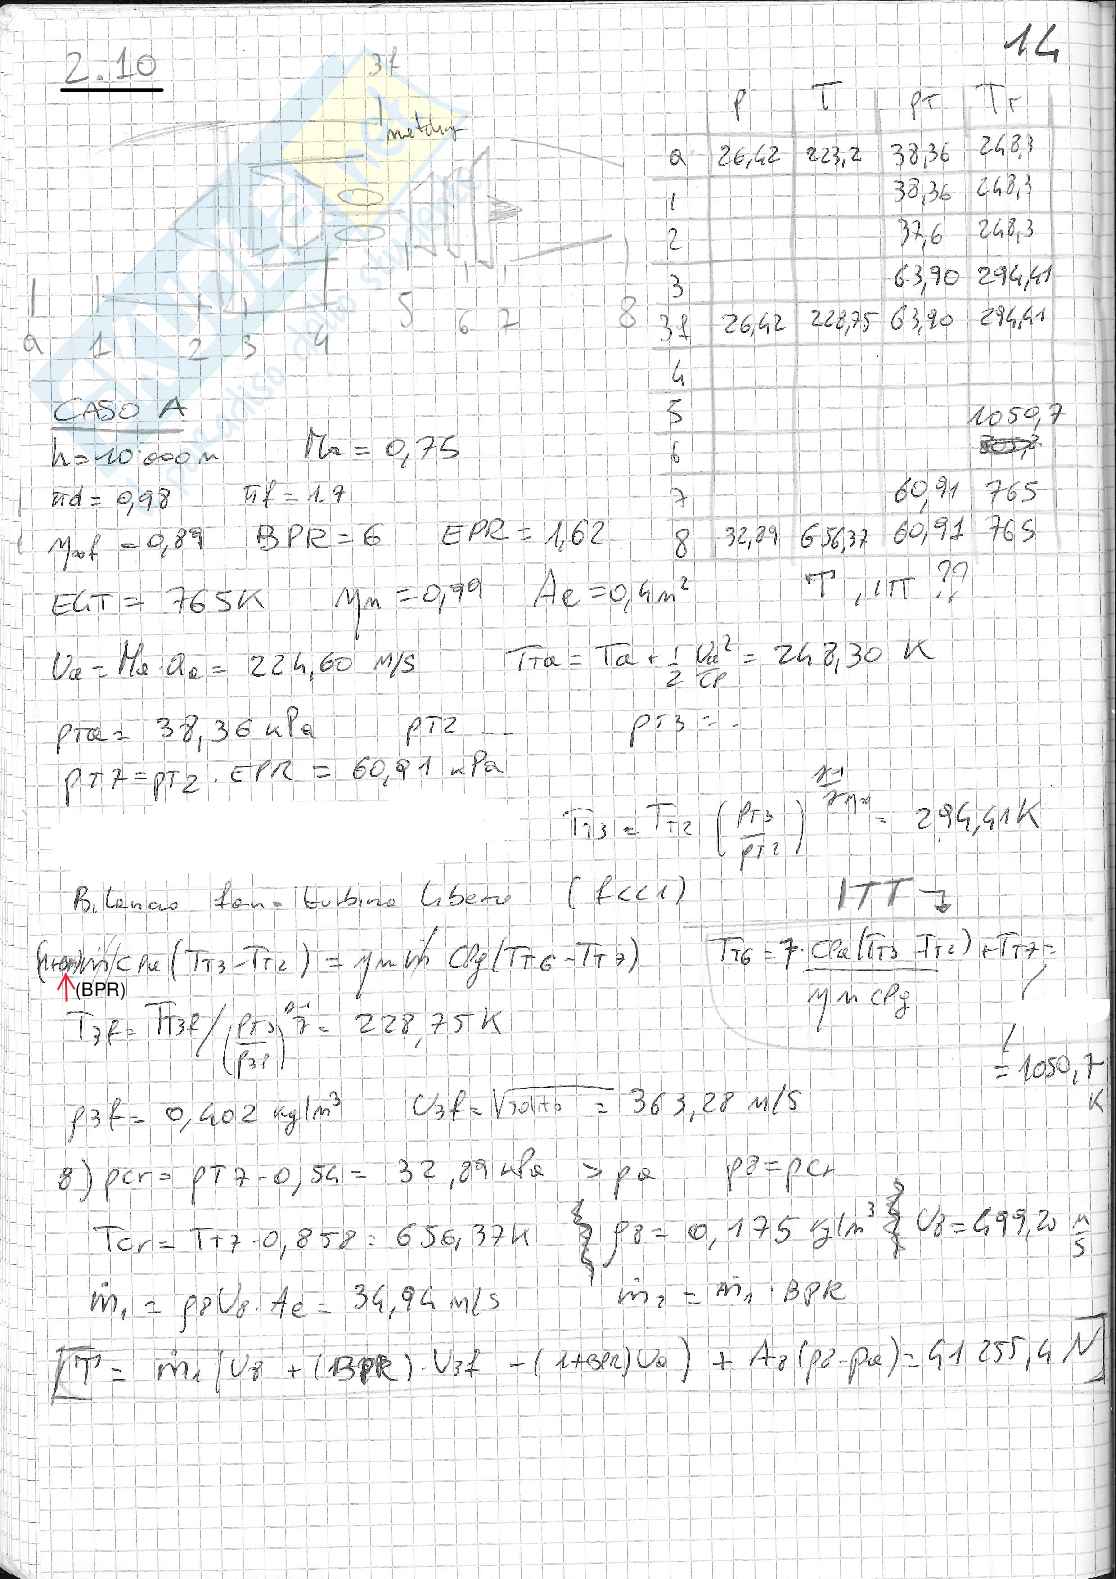 14
2.10
3f
a 1 2 3 4 5 6 7 8
p T pT TT
a 26,42 223,2 38,36 248,3
1 38,36 248,3
2 37,6 248,3
3 63,90 294,41
3f 26,42 228,75 63,90 294,41
4
5 1050,7
6
7 60,91 765
8 32,89 656,37 60,91 765
CASO A
h=10'000m Ma = 0,75
πd = 0,98 πf = 1.7
η∞f = 0,89 BPR = 6 EPR = 1,62
EGT = 765K ηm = 0,99 Ae = 0,4m² T, ITT ??
Ua = Ma·aa = 224,60 m/s TTa = Ta + 1/2 Ua²/cp = 248,30 K
pTa = 38,36 kPa pT2 ... pT3 = ..
pT7 = pT2 · EPR = 60,91 kPa
TT3 = TT2 (pT3/pT2)^(γ-1/γη∞) = 294,41K
Bilancio fan-turbina libera (f<<1) ITT
ṁ cpa (TT3-TT2) = ηm ṁ cpg (TT6-TT7) TT6 = 7· cpa(TT3-TT2)/ηm cpg + TT7 =
(BPR)
= 1050,7 K
T3f = TT3f/(pT3/p3f)^(γ-1/γ) = 228,75K
ρ3f = 0,402 kg/m³ U3f = √ = 363,28 m/s
8) pcr = pT7·0,54 = 32,89 kPa > pa p8 = pcr
Tcr = TT7·0,858 = 656,37K ρ8 = 0,175 kg/m³ U8 = 499,20 m/s
ṁ1 = ρ8U8·Ae = 34,94 m/s ṁ2 = ṁ1·BPR
T = ṁ1 (U8 + (BPR)·U3f - (1+BPR)Ua) + A8(p8-pa) = 41255,4 N